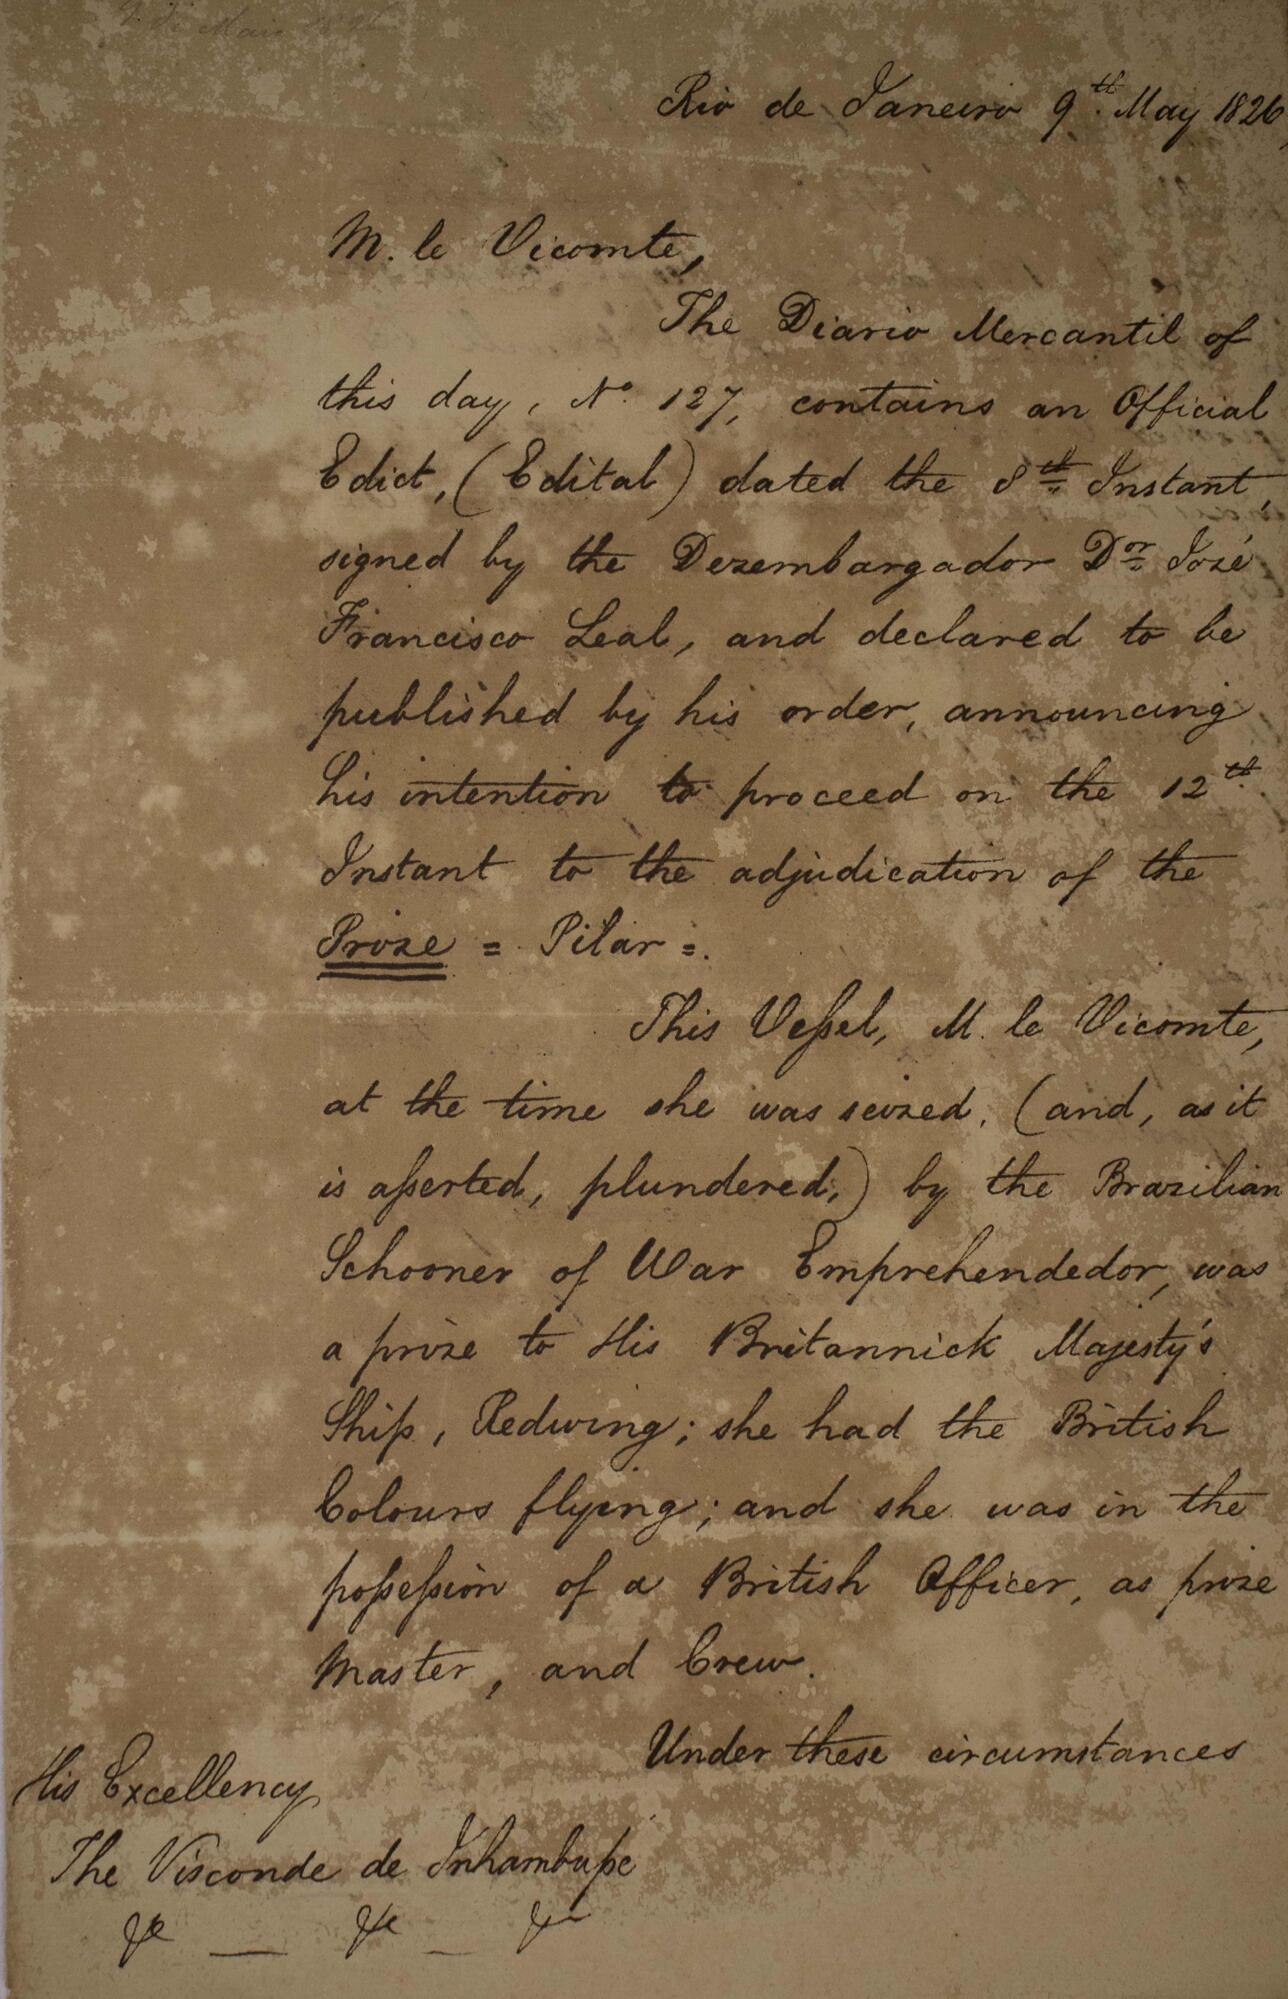 Rio de Janeiro 9th. May 1826,
M. le Vicomte,
The Diario Mercantil of
this day, No. 127, contains an Official
Edict, (Edital) dated the 8th Instant,
signed by the Dezembargador Dor José
Francisco Leal, and declared to be
published by his order, announcing
his intention to proceed on the 12th.
Instant to the adjudication of the
Prize = Pilar =.
This Veſsel, M. le Vicomte,
at the time she was seized, (and, as it
is aſserted, plundered,) by the Brazilian
Schooner of War Emprehendedor, was
a prize to His Britannick Majesty's
Ship, Redwing; she had the British
Colours flying; and she was in the
poſseſsion of a British Officer, as prize
Master, and Crew.
Under these circumstances
His Excellency
The Visconde de Inhambupe
&c — &c — &c